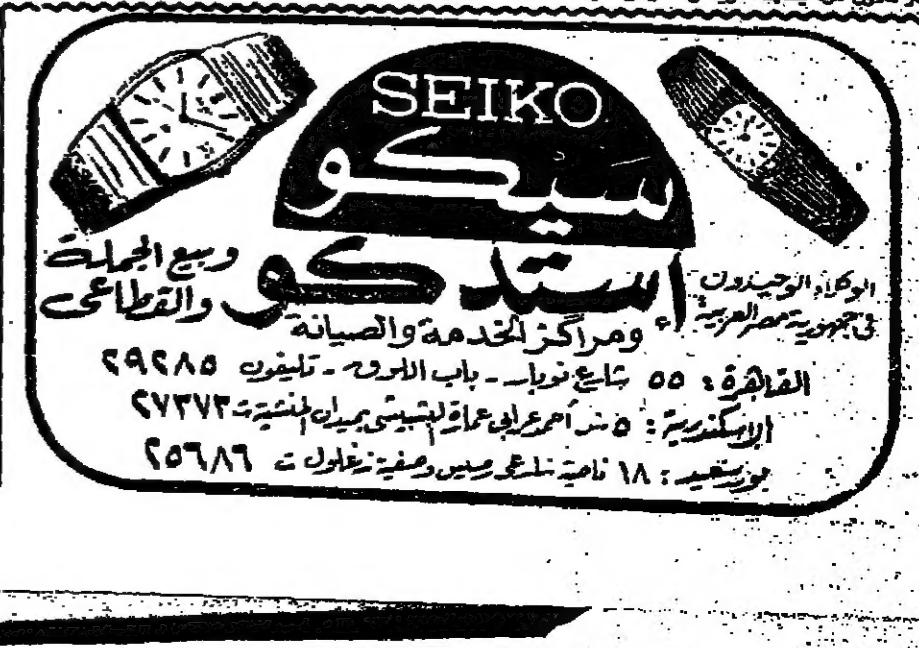 SEIKO
سيكو
استدكو
الوكلاء الوحيدون
فى جمهورية مصر العربية
وبيع الجملة
والقطاعى
ومراكز الخدمة والصيانة
القاهرة : ٥٥ شارع نوبار - باب اللوق - تليفون ٢٩٢٨٥
الإسكندرية : ٥ ش أحمد عرابى عمارة بميدان المنشية ت ٢٧٣٧٣
بورسعيد : ١٨ ناصية شارعى رمسيس وصفية زغلول ت ٢٥٦٨٦